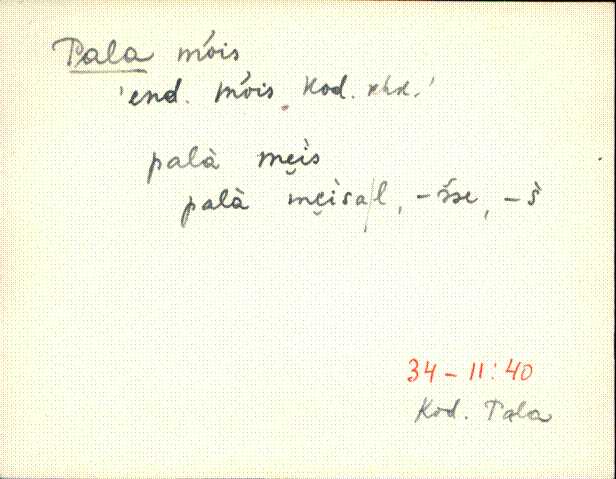 Pala mõis
'end. mõis Kod. khk.'
palà mɐ̯is
palà mɐ̯isal, -šse, -š
34 - 11:40
Kod. Pala